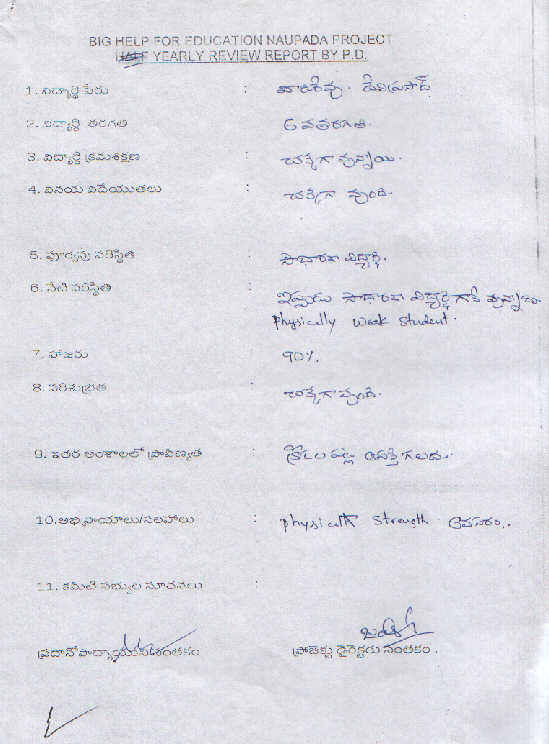 BIG HELP FOR EDUCATION NAUPADA PROJECT
HALF YEARLY REVIEW REPORT BY P.D.
1. విద్యార్థి పేరు :
2. విద్యార్థి తరగతి : 6 వ తరగతి.
3. విద్యార్థి క్రమశిక్షణ : చక్కగా వున్నాయి.
4. వినయ విదేయుతలు : చక్కగా వుంది.
5. పూర్వపు పరిస్థితి : సాధారణ విద్యార్థి.
6. నేటి పరిస్థితి : ఇప్పుడు సాధారణ విద్యార్థి గానే వున్నాడు.
Physically weak student.
7. హాజరు : 90%.
8. పరిశుభ్రత : చక్కగా వుంది.
9. ఇతర అంశాలలో ప్రావీణ్యత : క్రీడల పట్ల ఆసక్తి గలదు.
10.అభిప్రాయాలు/సలహాలు : physical strength అవసరం.
11. కమిటీ సభ్యుల సూచనలు :
ప్రధానోపాధ్యాయుని సంతకం ప్రాజెక్టు డైరెక్టరు సంతకం .